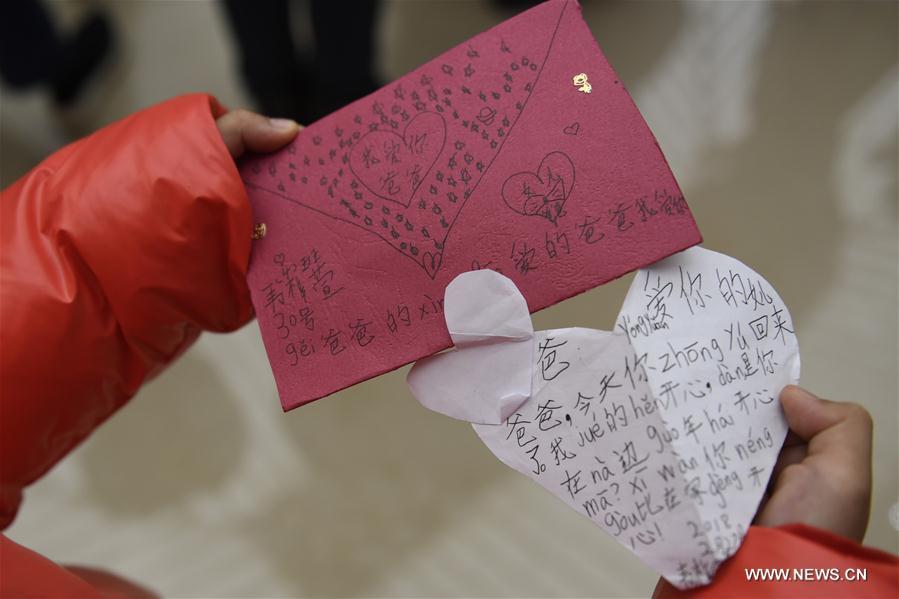 我爱你
爸爸
30号
gěi爸爸的xìn
爱的爸爸我爱你
爸
爸爸,今天你zhōng yú回来
了我jué的hěn开心,dàn是你
在nà边guò年hái开心
mā?xī wàn你néng
gòu比在家gèng开
心!
爱你的
2018
WWW.NEWS.CN